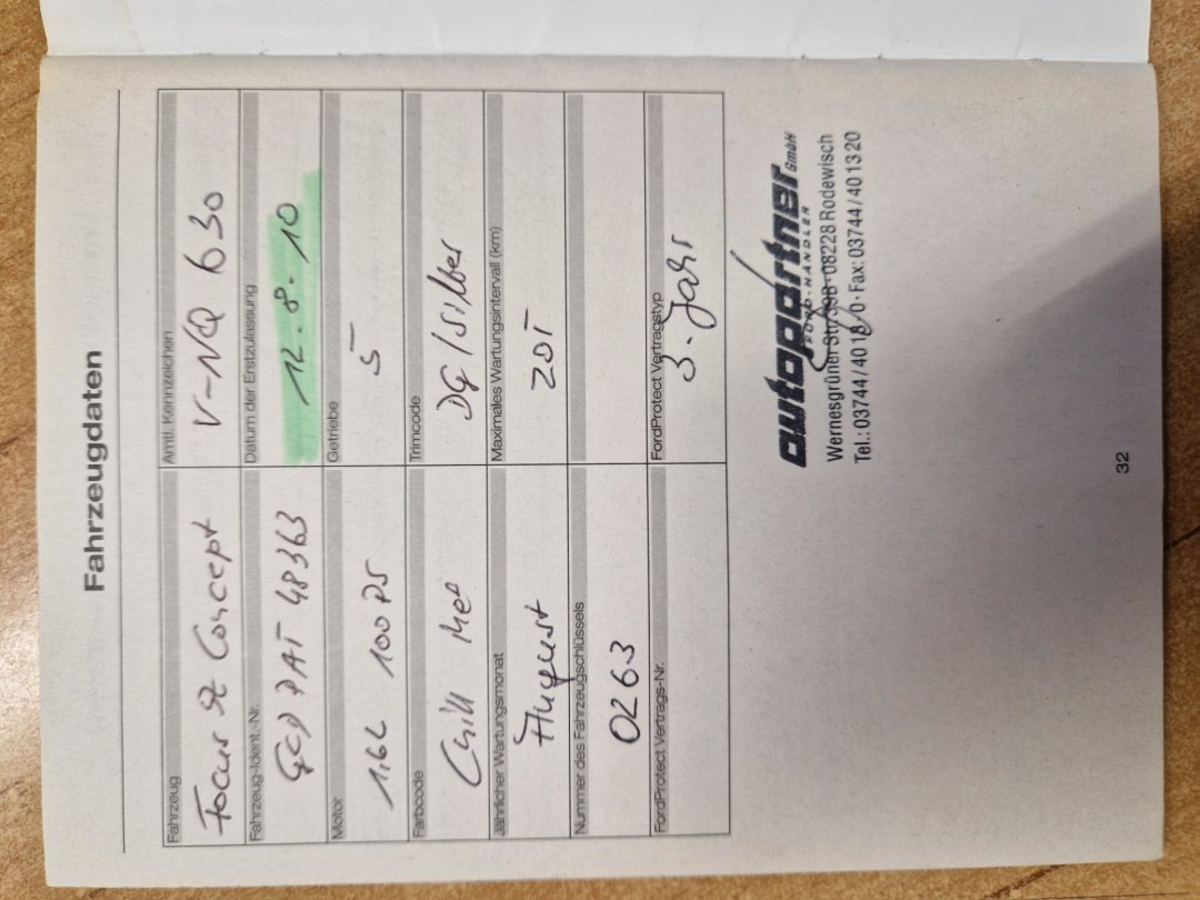 Fahrzeugdaten
Fahrzeug
Focus St Concept
Amtl. Kennzeichen
V-NQ 630
Fahrzeug-Ident.-Nr.
GCD PAT 48363
Datum der Erstzulassung
12.8.10
Motor
1,6L 100 PS
Getriebe
5
Farbcode
Chill Met
Trimcode
DG/Silber
Jährlicher Wartungsmonat
August
Maximales Wartungsintervall (km)
20T
Nummer des Fahrzeugschlüssels
0263
FordProtect Vertrags-Nr.
FordProtect Vertragstyp
3. Jahr
autopartner GmbH
FORD-HÄNDLER
Wernesgrüner Str. 39B · 08228 Rodewisch
Tel.: 03744/4018/0 · Fax: 03744/401320
32